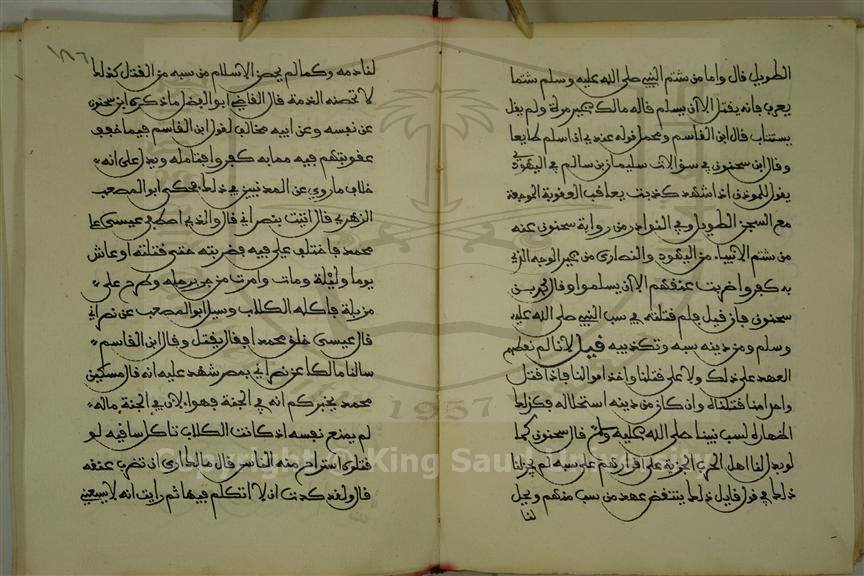 الطويل قال واما من شتم النبي صلى الله عليه وسلم شتما
يعرف فانه يقتل الا ان يسلم قاله مالك غير مرة ولم يقل
يستتاب قال ابن القاسم ومحمل قوله عندي ان اسلم طايعا
وقال ابن سحنون في سؤالات سليمان بن سالم في اليهودي
يقول للموذن اذا تشهد كذبت يعاقب العقوبة الموجعة
مع السجن الطويل وفي النوادر من رواية سحنون عنه
من شتم الانبياء من اليهود والنصارى من غير الوجه الذي
به كفروا ضربت عنقهم الا ان يسلموا وقال محمد بن
سحنون فان قيل فلم قتلته في سب النبي صلى الله عليه
وسلم ومن دينه سبه وتكذيبه قيل لانا لم نعطهم
العهد على ذلك ولا على قتلنا واخذ اموالنا فاذا قتل
واحدا منا قتلناه وان كان من دينه استحلاله فكذلك
اظهاره لسب نبينا صلى الله عليه وسلم قال سحنون كما
لو بذل لنا اهل الحرب الجزية على اقرارهم على سبه لم يجز لنا
ذلك في قول قايل ذلك ينتقض عهد من سب منهم ويحل
لنا
١٨٦
لنا دمه وكما لم يحصن الاسلام من سبه من القتل كذلك
لا تحصنه الذمة قال القاضي ابو الفضل ما ذكره ابن سحنون
عن نفسه وعن ابيه مخالف لقول ابن القاسم فيما خفف
عقوبتهم فيه مما به كفروا فتامله ويدل على انه
خلاف ما روي عن المدنيين في ذلك فحكى ابو المصعب
الزهري قال اتيت بنصراني قال والذي اصطفى عيسى على
محمد فاختلف علي فيه فضربته حتى قتلته او عاش
يوما وليلة ومات وامرت من جر برجله وطرح على
مزبلة فاكلته الكلاب وسيل ابو المصعب عن نصراني
قال عيسى خلق محمدا فقال يقتل وقال ابن القاسم
سالنا مالكا عن نصراني بمصر شهد عليه انه قال مسكين
محمد يخبركم انه في الجنة فهو الان في الجنة ماله
لم ينفع نفسه اذ كانت الكلاب تاكل ساقيه لو
قتلوه استراح منه الناس قال مالك ارى ان تضرب عنقه
قال ولقد كدت ان لا اتكلم فيها ثم رايت انه لا يسعني
1957
Copyright © King Saud University